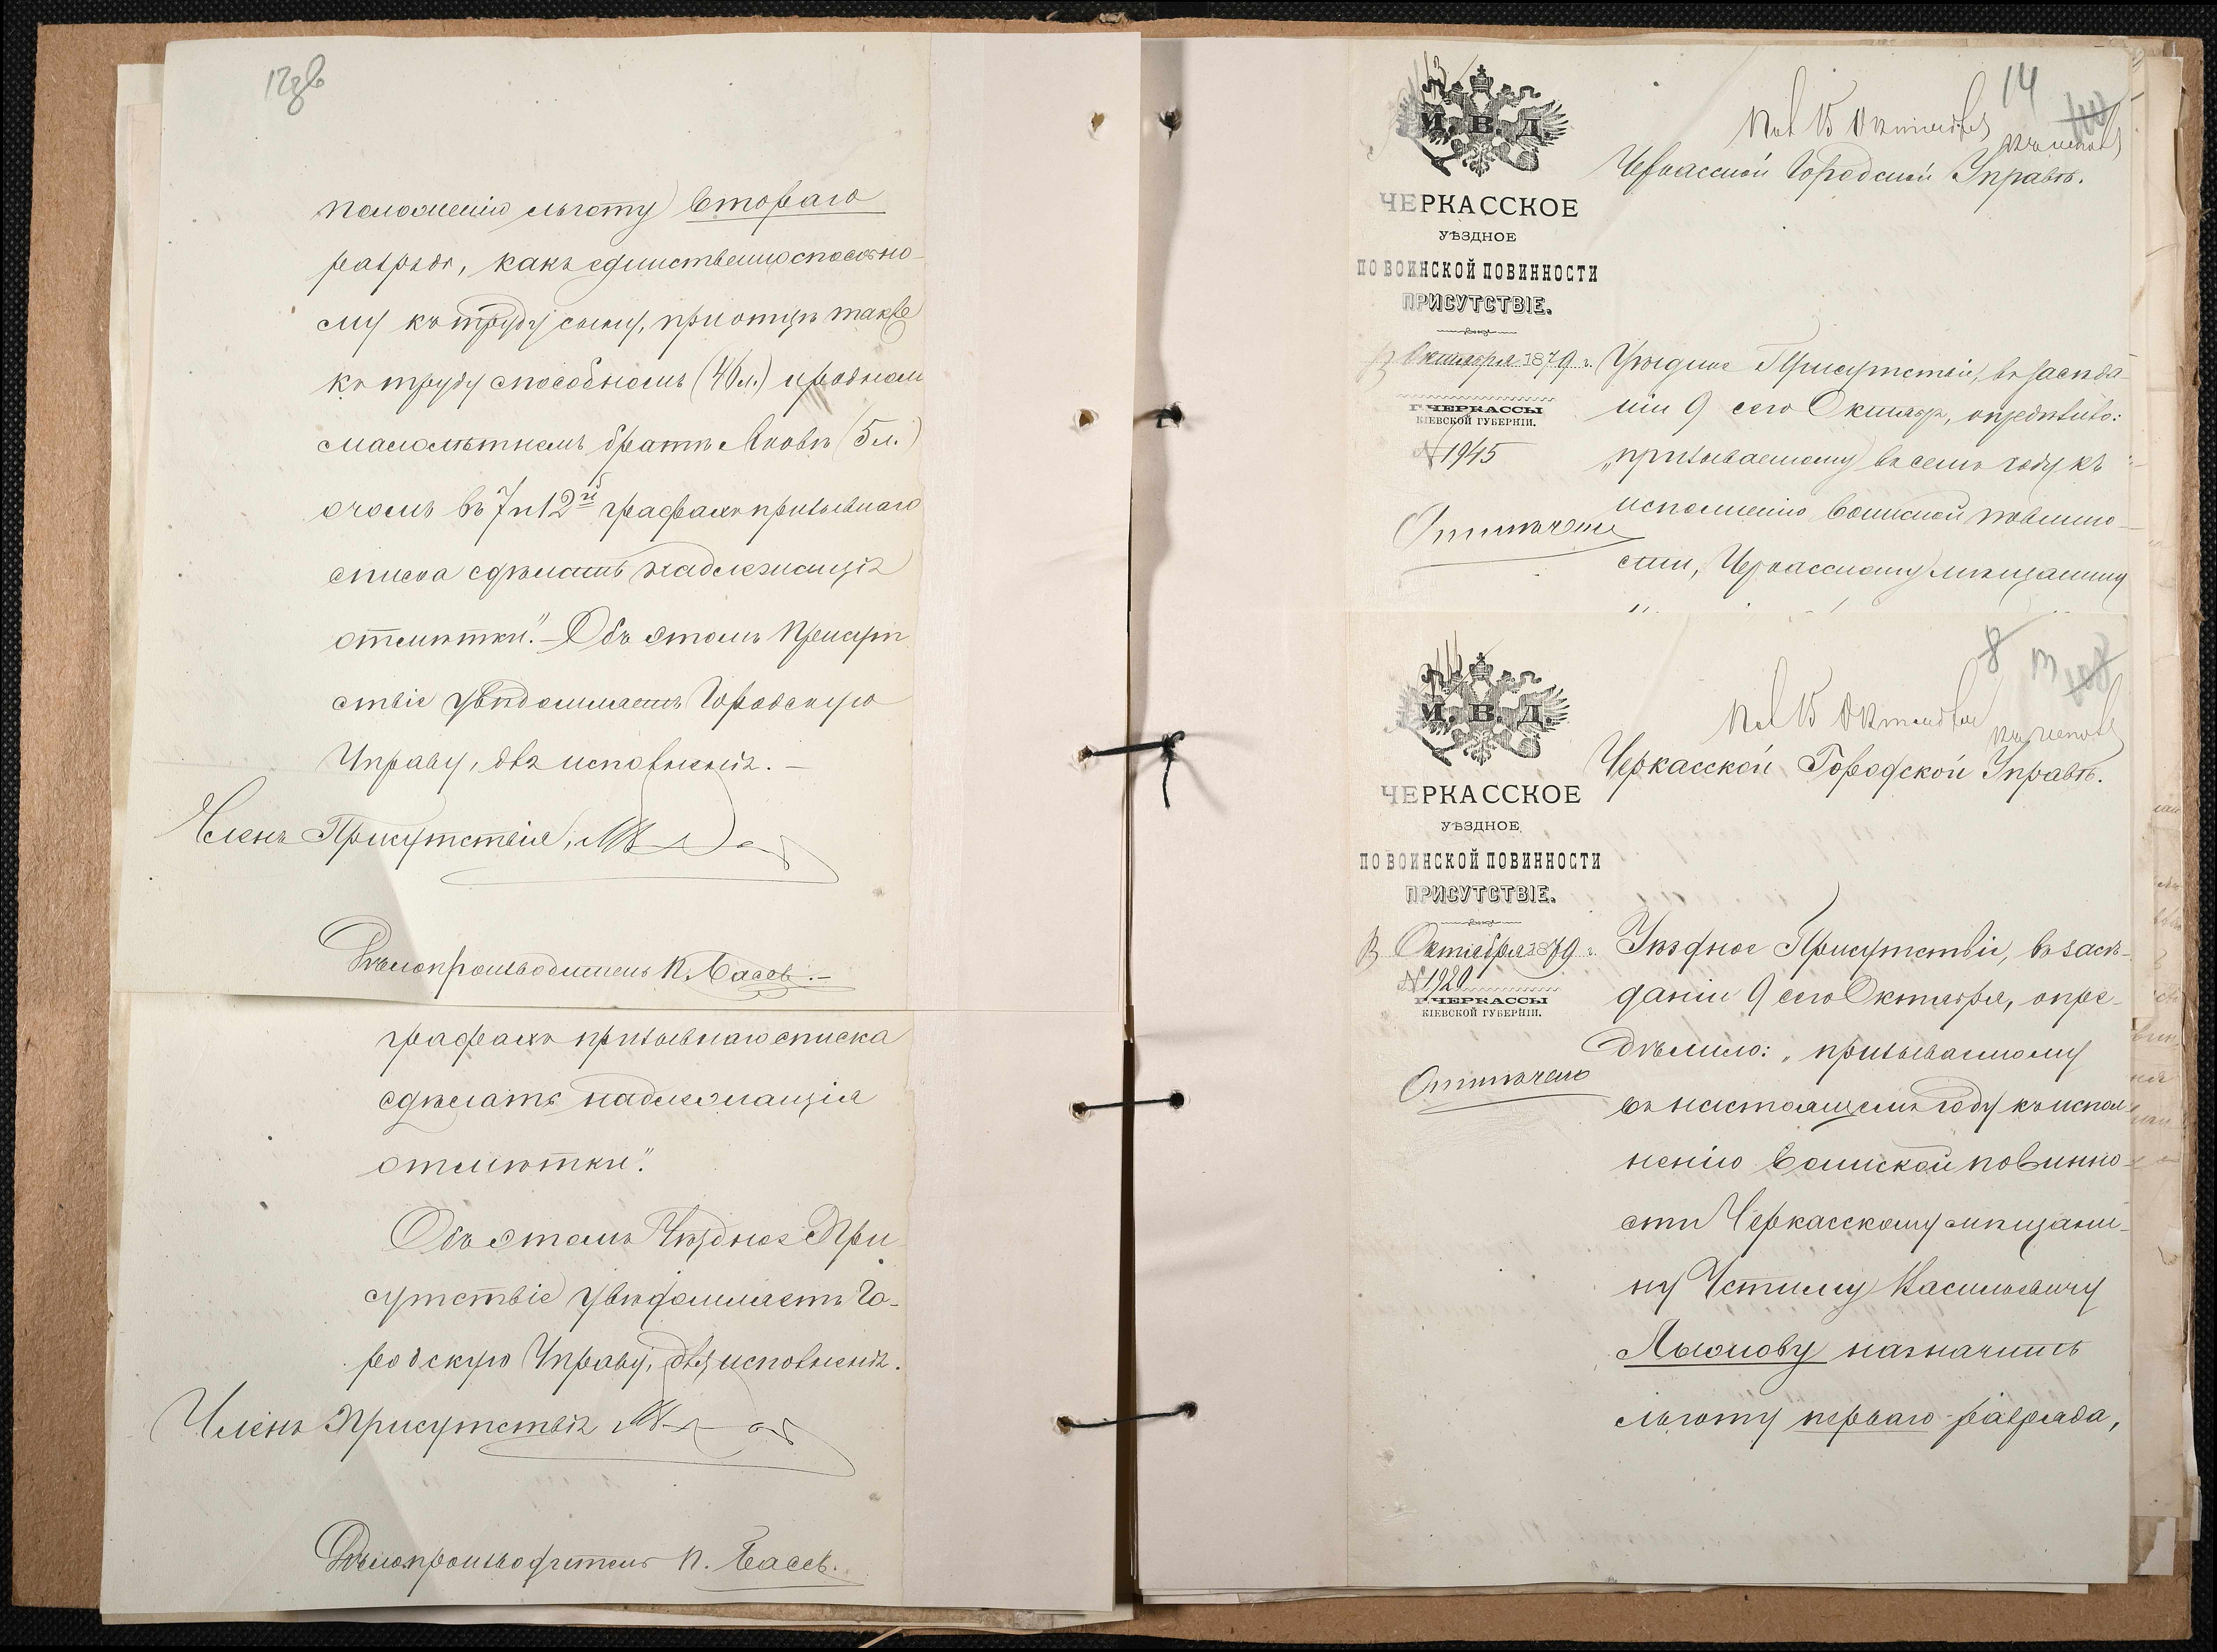 12об
положенію льготу втораго
разряда, какъ единственноспособно-
му къ труду сыну, при отцѣ также
къ труду способномъ (46 л.) и родномъ
малолѣтнемъ братѣ Яковѣ (5 л.)
о чемъ въ 7 и 12й графахъ призывнаго
списка сдѣлать надлежащія
отмѣтки". – Объ этомъ Присут
ствіе увѣдомляетъ Городскую
Управу, для исполненія. –
Членъ Присутствія,
Дѣлопроизводитель П. Басевъ. –
графахъ призывнаго списка
сдѣлать надлежащія
отмѣтки".
Объ этомъ Уѣздное При-
сутствіе увѣдомляетъ Го-
родскую Управу, для исполненія.
Членъ Присутствія
Дѣлопроизводитель П. Басевъ.
14
М. В. Д.
ЧЕРКАССКОЕ
УѢЗДНОЕ
ПО ВОИНСКОЙ ПОВИННОСТИ
ПРИСУТСТВІЕ.
13 Октября 1879 г.
Г. ЧЕРКАССЫ
КІЕВСКОЙ ГУБЕРНІИ.
№ 1945
Отмѣчено
Пол 15 Октября
Черкасской Городской Управѣ.
Уѣздное Присутствіе, въ засѣда-
ніи 9 сего Октября, опредѣлило:
„призываемому въ семъ году къ
исполненію воинской повинно-
сти, Черкасскому мѣщанину
8 13 108
М. В. Д.
ЧЕРКАССКОЕ
УѢЗДНОЕ
ПО ВОИНСКОЙ ПОВИННОСТИ
ПРИСУТСТВІЕ.
13 Октября 1879 г.
№ 1920
Г. ЧЕРКАССЫ
КІЕВСКОЙ ГУБЕРНІИ.
Отмѣчено
Пол 15 Октября
Черкасской Городской Управѣ.
Уѣздное Присутствіе, въ засѣ-
даніи 9 сего Октября, опре-
дѣлило: „призываемому
въ настоящемъ году къ испол
ненію воинской повинно-
сти Черкасскому мѣщани-
ну Устиму Васильевичу
назначить
льготу перваго разряда,